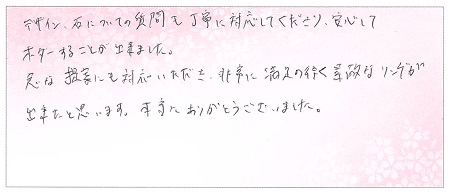 デザイン、石についての質問も丁寧に対応してくださり、安心して
オーダーすることが出来ました。
急な提案にも対応いただき、非常に満足の行く素敵なリングが
出来たと思います。本当にありがとうございました。